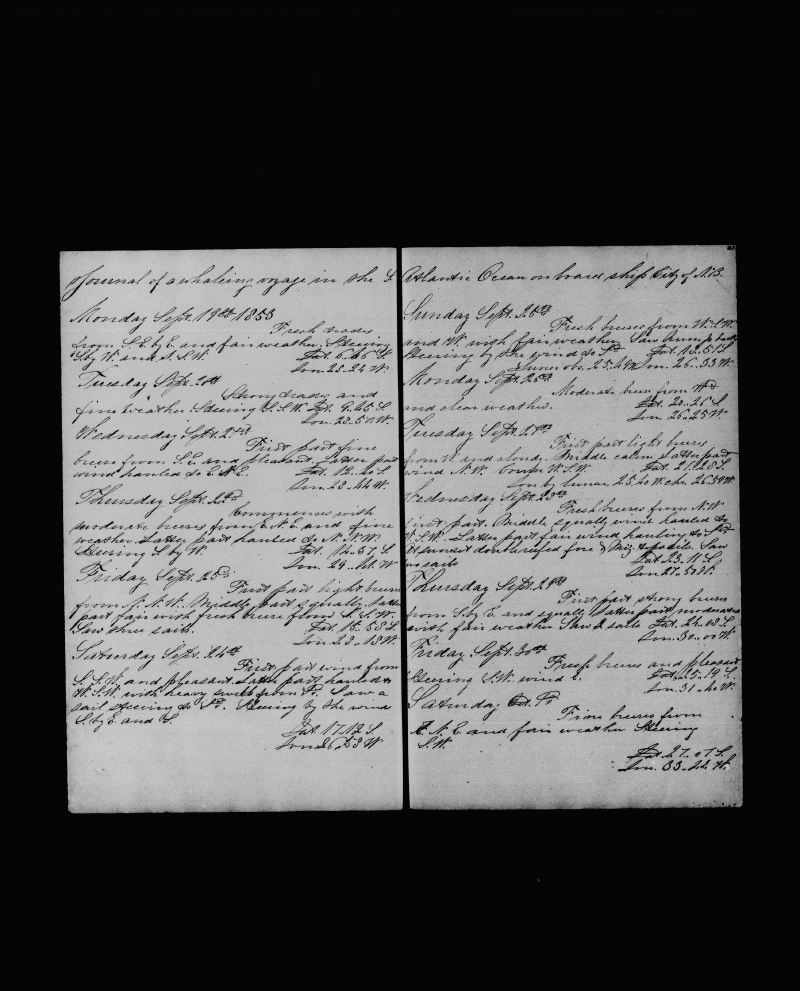 Journal of a whaling voyage in the S.
Monday Sept. 19th 1853
Fresh trades
from S.E. by E. and fair weather. Steering
S. by W. and S.S.W. Lat.
Lon. 25-24 W.
Tuesday Sept. 20th
Strong trades and
fine weather. Steering S.S.W. Lat. 9-45 S.
Lon.
Wednesday Sept. 21st
First part fine
breeze from S.E. and pleasant. Latter part
wind hauled to E.N.E. Lat.
Lon. 28-44 W.
Thursday Sept. 22nd
Commences with
moderate breezes from E.N.E. and fine
weather. Latter part hauled to N.N.W.
Steering S. by W. Lat. 14-57 S.
Lon. 29- W.
Friday Sept. 23d
First part light breezes
from N.N.W. Middle part squally. Latter
part fair with fresh breeze from S.S.W.
Saw three sails. Lat. 16-58 S.
Lon. 28-18 W.
Saturday Sept. 24th
First part wind from
S.S.W. and pleasant. Latter part hauled to
W.S.W. with heavy swell from Sd. Saw a
sail steering to Sd. Steering by the wind
S. by E. and S.
Lat. 17-12 S.
Lon. 26-58 W.
Atlantic Ocean on board ship City of N.B.
Sunday Sept. 25th
Fresh breeses from W.S.W.
and W. with fair weather. Saw
Steering by the wind to Sd. Lat. 18-51 S.
Lunar obs. Lon. 26-33 W.
Monday Sept. 26th
Moderate breese from Wd
and clear weather. Lat. 20-26 S.
Lon. 26-25 W.
Tuesday Sept. 27th
First part light breeses
from W. and cloudy. Middle calm. Latter part
wind N.W. Course W.S.W. Lat. 21-28 S.
Lon by lunar 25.20 W chr. 26.59 W.
Wednesday Sept. 28th
Fresh breeses from N.W.
first part. Middle squally wind hauled to
W.S.W. Latter part fair wind hauling to Sd
At sunset double reefed fore & Miz. topsails. Saw
sails Lat. 23-11 S.
Lon. 27- W.
Thursday Sept. 29th
First part strong breeses
from S. by E. and squally. Latter part moderate
with fair weather. Saw 2 sails Lat. 24-03 S.
Lon. 30-00 W.
Friday Sept. 30th
Fresh breeses and pleasant
Steering S.W. wind E. Lat. 25-19 S.
Lon. 31-40 W.
Saturday Oct. 1st
Fine breeses from
E.N.E. and fair weather Steering
S.W.
Lat. 27-07 S.
Lon. 33-22 W.